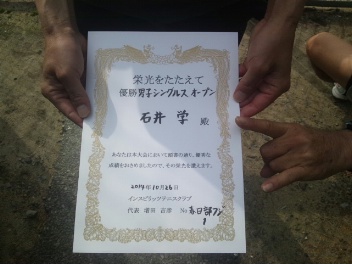 栄光をたたえて
優勝 男子シングルス オープン
石井 学 殿
あなたは本大会において頭書の通り、優秀な
成績をおさめましたので、その栄光を讃えます。
2014年10月26日
インスピリッツテニスクラブ
代表
No 春日部フジ
1